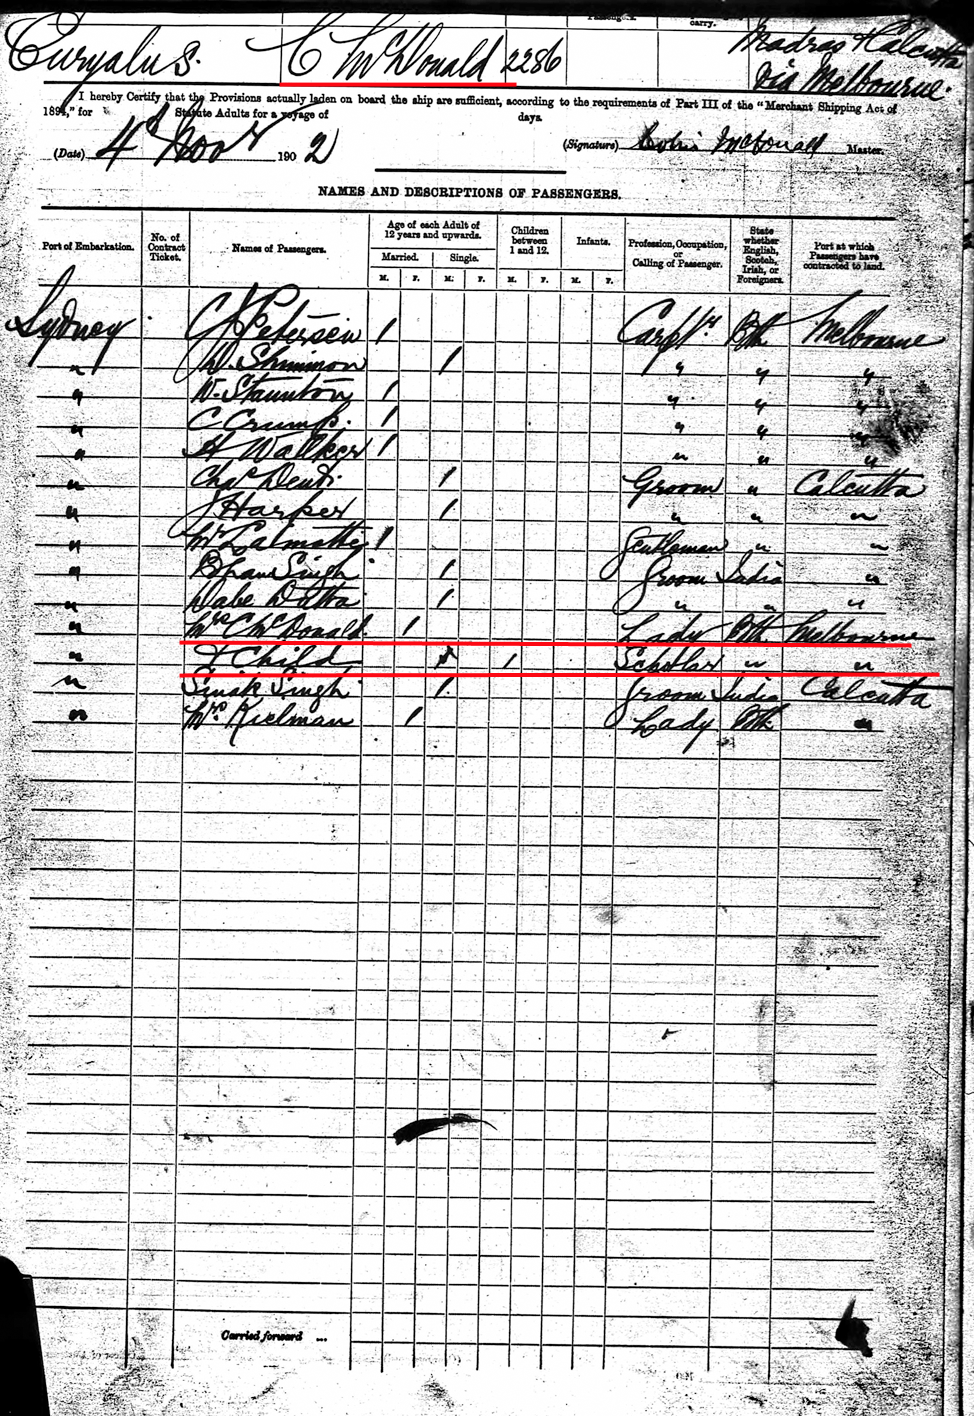 Passengers. carry.
Euryalus. C McDonald 2286 Madras & Calcutta
via Melbourne.
I hereby Certify that the Provisions actually laden on board the ship are sufficient, according to the requirements of Part III of the "Merchant Shipping Act of
1894," for Statute Adults for a voyage of days.
(Date) 4th Novr 1902 (Signature) Colin McDonald Master.
NAMES AND DESCRIPTIONS OF PASSENGERS.
Port of Embarkation. No. of Contract Ticket. Names of Passengers. Age of each Adult of 12 years and upwards. Children between 1 and 12. Infants. Profession, Occupation, or Calling of Passenger. State whether English, Scotch, Irish, or Foreigners. Port at which Passengers have contracted to land.
Married. Single.
M. F. M. F. M. F. M. F.
Sydney C J Petersen 1 Carptr Bth Melbourne
" W. Shimmon 1 " " "
" W. Staunton 1 " " "
" C Crump. 1 " " "
" H Walker 1 " " "
" Chas Dent. 1 Groom " Calcutta
" J Harper 1 " " "
" Mr Lalmatte 1 Gentleman " "
" Singh 1 Groom India "
" Dabe Datta 1 " " "
" Mrs C McDonald 1 Lady Bth Melbourne
" & Child 1 Scholar " "
" Singh 1 Groom India Calcutta
" Mrs Kielman 1 Lady Bth "
Carried forward ...